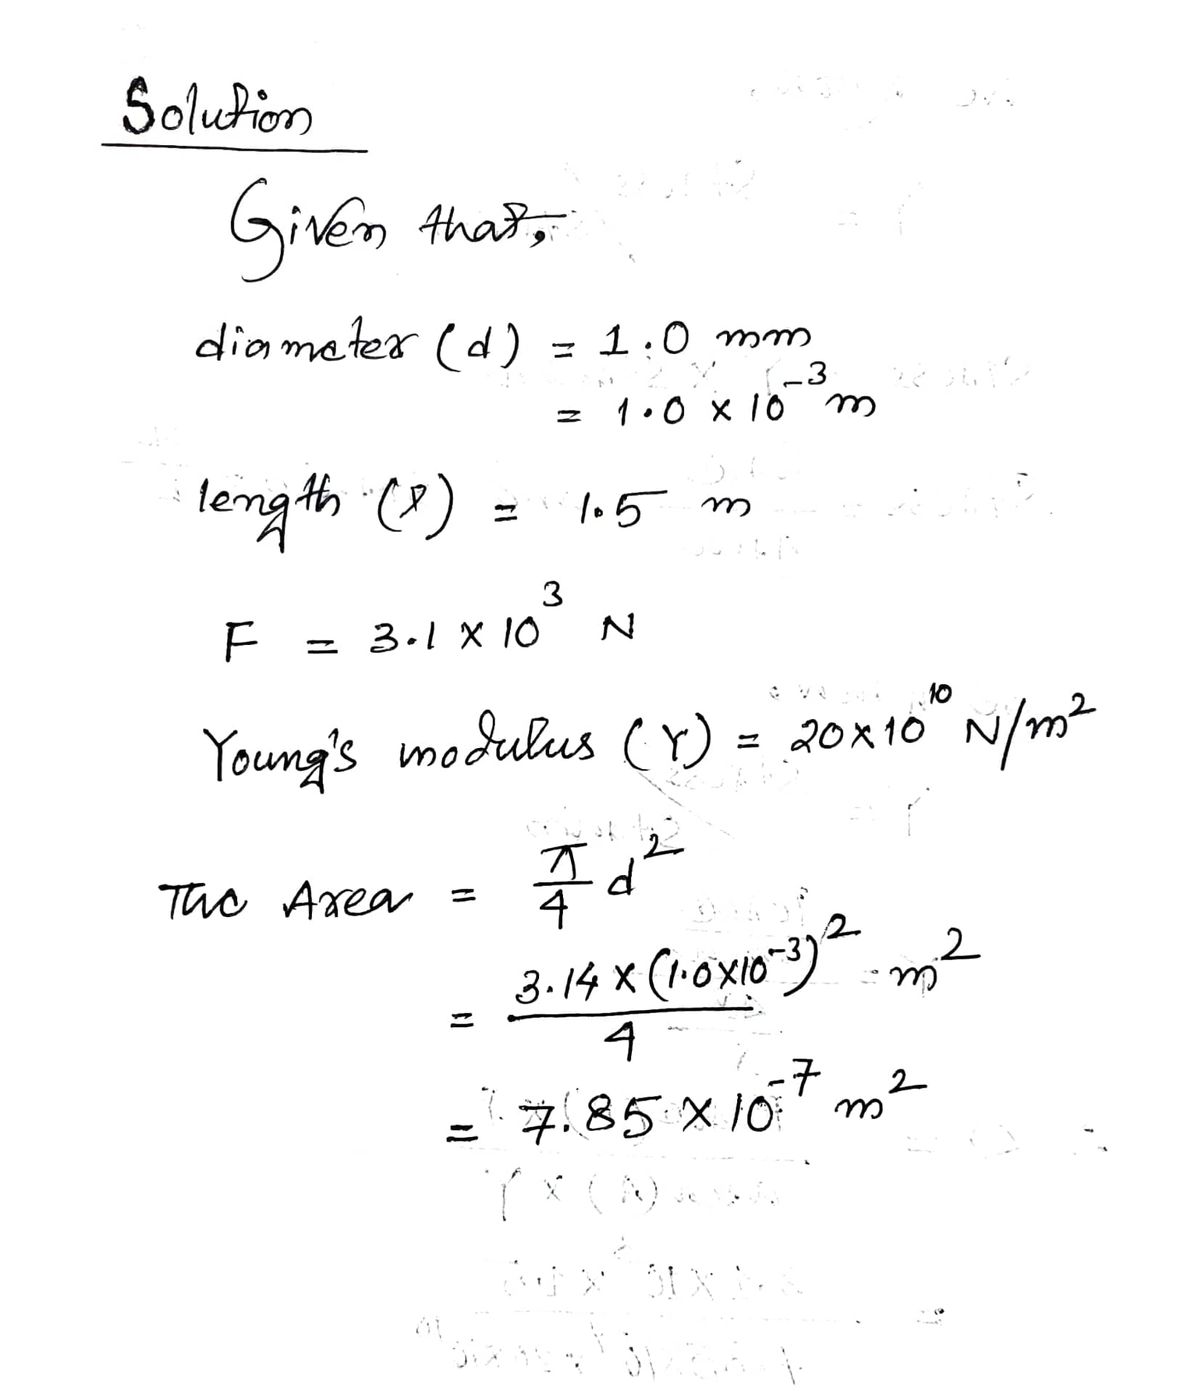 Solution
Given that,
diameter (d) = 1.0 mm
= 1.0 × 10⁻³ m
length (l) = 1.5 m
F = 3.1 × 10³ N
Young's modulus (Y) = 20×10¹⁰ N/m²
The Area = π/4 d²
= 3.14 × (1.0×10⁻³)² / 4 m²
= 7.85 × 10⁻⁷ m²